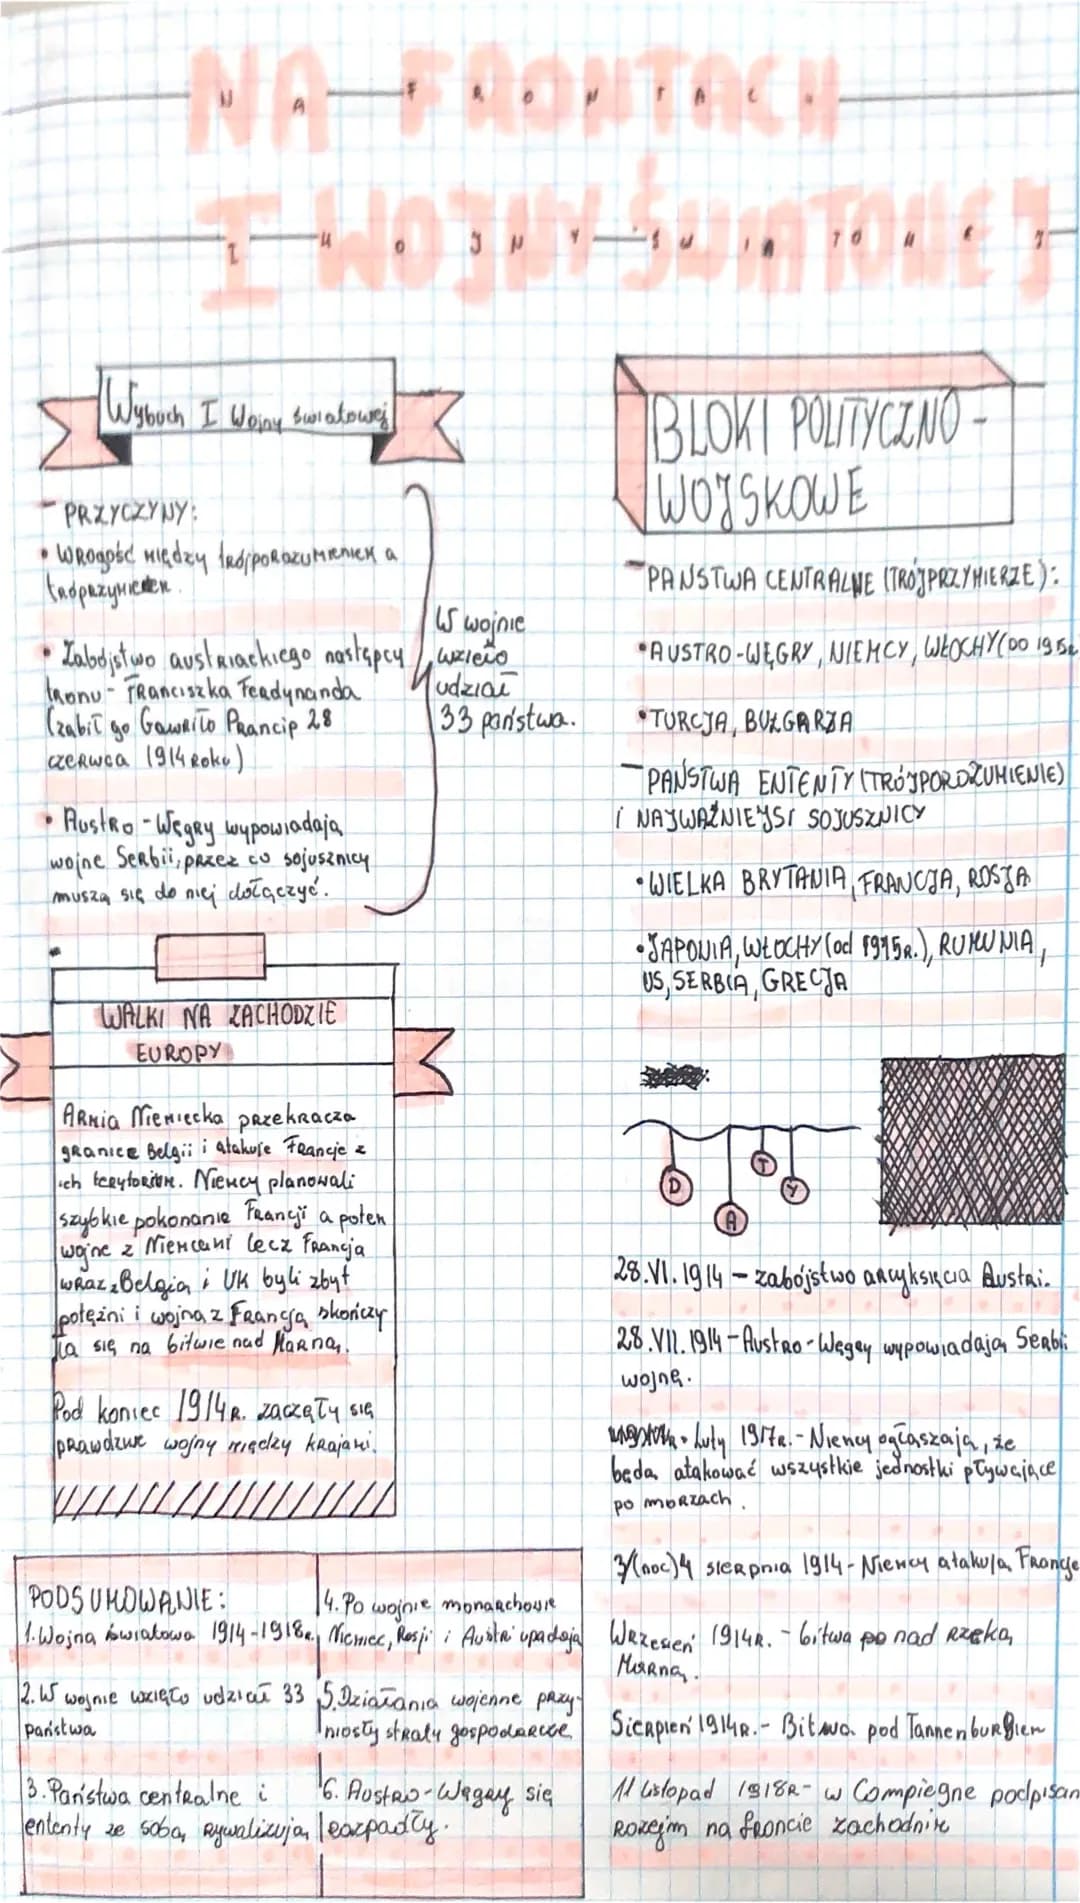 NA FRONTACH
I WOJNY ŚWIATOWEJ
Wybuch I Wojny światowej
- PRZYCZYNY:
• Wrogość między trójporozumieniem a
trójprzymierzem.
• Zabójstwo austriackiego następcy
tronu - Franciszka Ferdynanda
(zabił go Gawriło Prancip 28
czerwca 1914 roku)
• Austro-Węgry wypowiadają
wojnę Serbii, przez co sojusznicy
muszą się do niej dołączyć.
W wojnie
wzięło
udział
33 państwa.
WALKI NA ZACHODZIE
EUROPY
Armia Niemiecka przekracza
granice Belgii i atakuje Francje z
ich terytorium. Niemcy planowali
szybkie pokonanie Francji a potem
wojne z Niemcami lecz Francja
wraz z Belgią i UK byli zbyt
potężni i wojna z Francją skończy
ła się na bitwie nad Marną.
Pod koniec 1914r. zaczęły się
prawdziwe wojny między krajami.
PODSUMOWANIE:
1. Wojna światowa 1914-1918r.
2. W wojnie wzięło udział 33
państwa
3. Państwa centralne i
ententy ze sobą rywalizują
4. Po wojnie monarchowie
Niemiec, Rosji i Austri upadają
5. Działania wojenne przy-
niosły straty gospodarcze
6. Austro-Węgry się
rozpadły.
BLOKI POLITYCZNO -
WOJSKOWE
- PAŃSTWA CENTRALNE (TRÓJPRZYMIERZE):
• AUSTRO-WĘGRY, NIEMCY, WŁOCHY (DO
• TURCJA, BUŁGARZA
- PAŃSTWA ENTENTY (TRÓJPOROZUMIENIE)
I NAJWAŻNIEJSI SOJUSZNICY
• WIELKA BRYTANIA, FRANCJA, ROSJA
• JAPONIA, WŁOCHY (od 1915R.), RUMUNIA,
US, SERBIA, GRECJA
DATY
28.VI.1914 - zabójstwo arcyksięcia Austri.
28.VII.1914 - Austro-Węgry wypowiadają Serbii
wojnę.
Luty 1917r. - Niemcy ogłaszają, że
będą atakować wszystkie jednostki pływające
po morzach.
3/(noc)4 sierpnia 1914 - Niemcy atakują Francje
Wrzesień 1914R. - bitwa po nad rzeką
Marną.
Sierpień 1914R. - Bitwa pod Tannenburgiem
11 listopad 1918R - w Compiegne podpisan
rozejm na froncie zachodnim